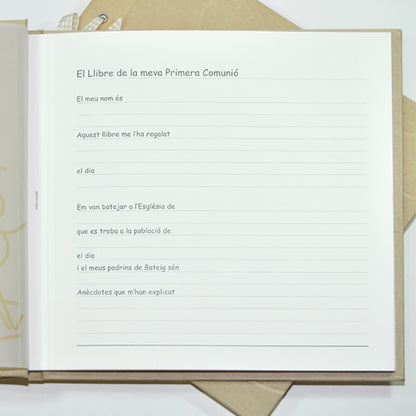 El Llibre de la meva Primera Comunió
El meu nom és
Aquest llibre me l'ha regalat
el dia
Em van batejar a l'Església de
que es troba a la població de
el dia
i el meus padrins de Bateig són
Anècdotes que m'han explicat